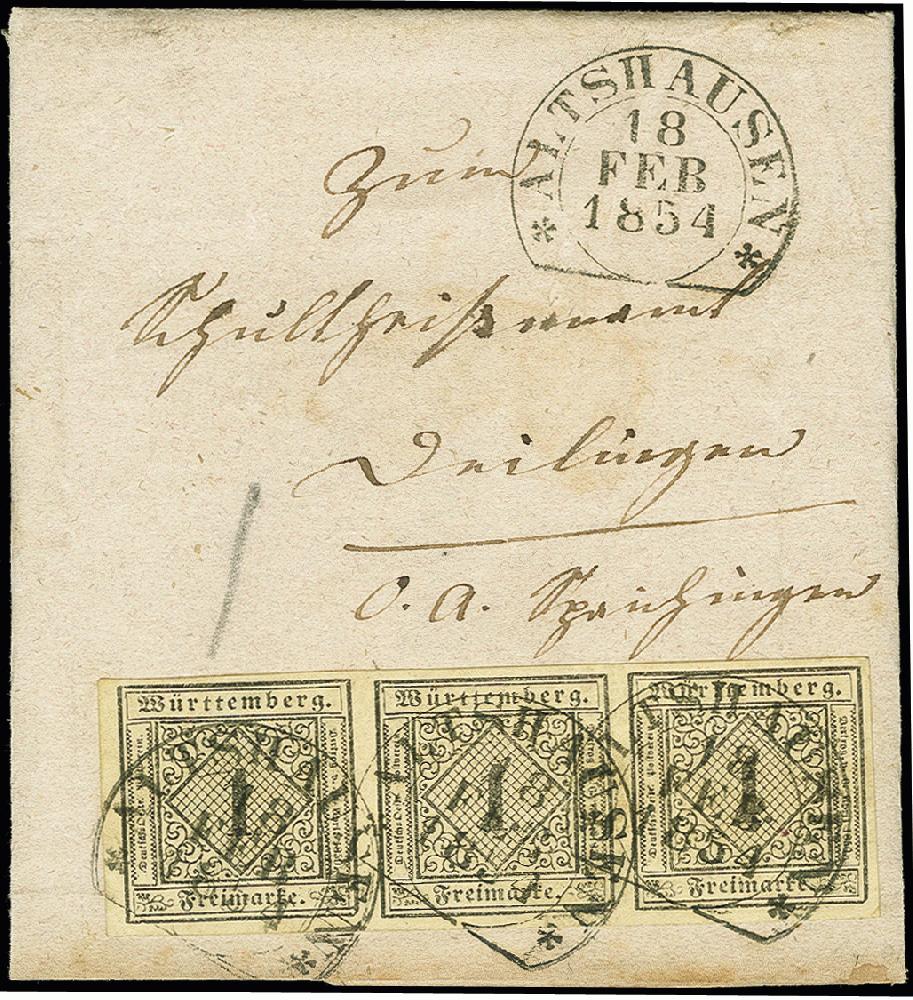 ALTSHAUSEN
18
FEB
1854
Zum
Schultheißenamt
Deilingen
O. A. Spaichingen
Württemberg. Württemberg. Württemberg.
1 1 1
Freimarke. Freimarke. Freimarke.